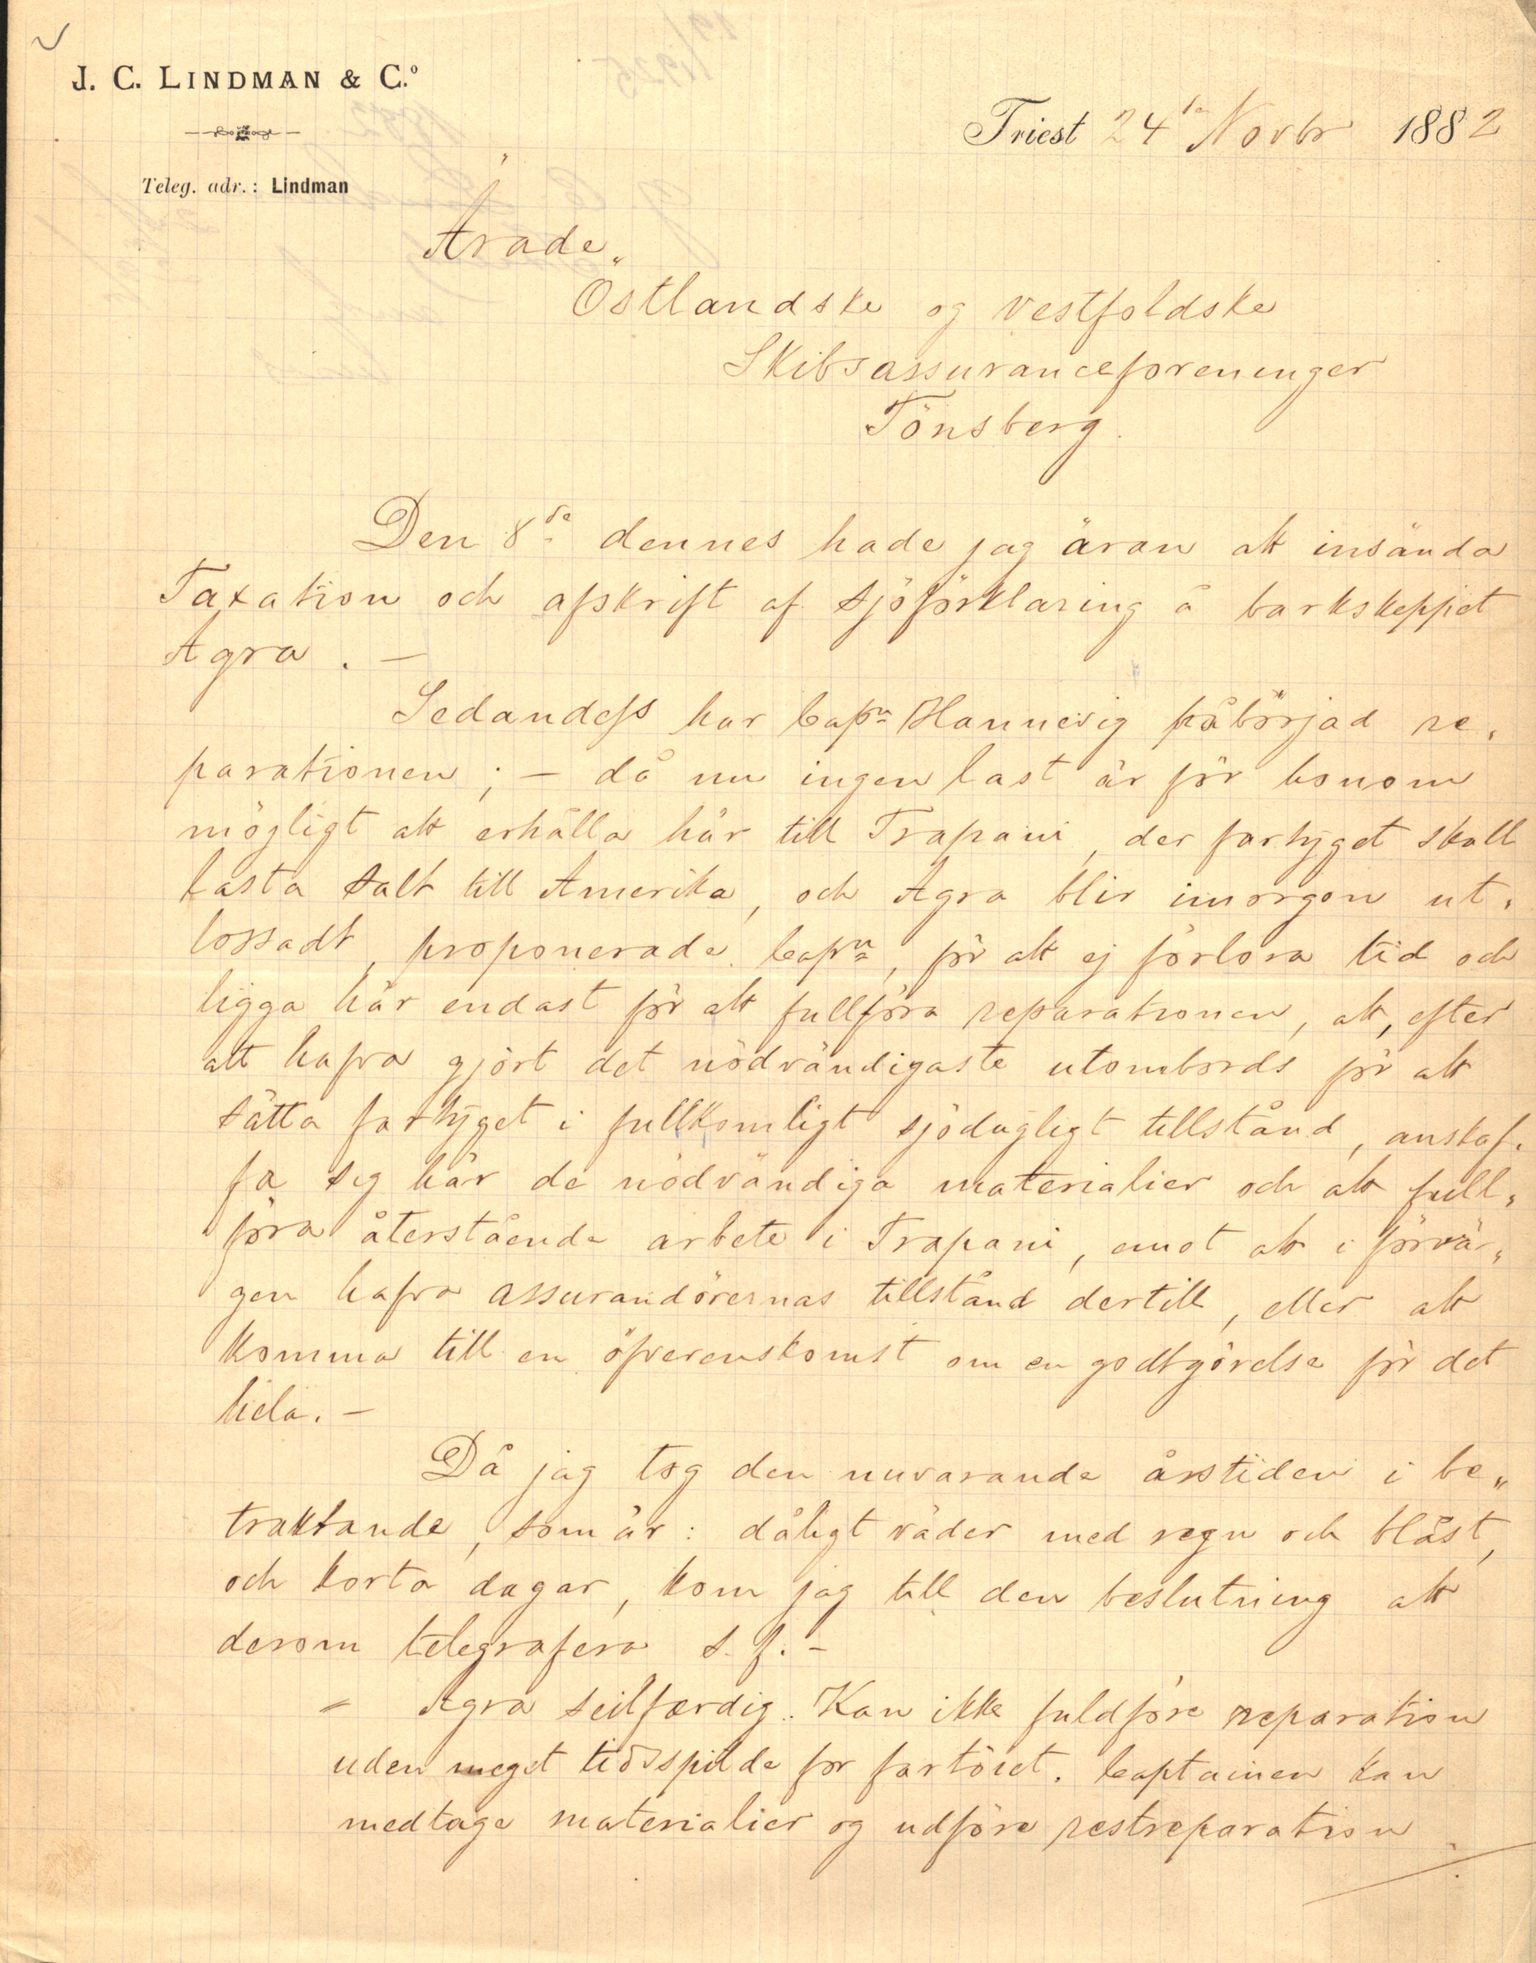 J. C. LINDMAN & C.º
Teleg. adr.: Lindman
Triest 24de Novbr 1882
Ärade
Östlandske og Vestfoldske
Skibsassuranceforeninger
Tönsberg.
Den 8de dennes hade jag äran att insända
Taxation och afskrift af sjöförklaring å barkskeppet
Agra. —
Sedandess har Capn Hannevig påbörjad re„
parationen; — då nu ingen last är för honom
mögligt att erhålla här till Trapani, der fartyget skall
lasta salt till Amerika, och Agra blir imorgon ut„
lossadt, proponerade Capn, för att ej förlora tid och
ligga här endast för att fullföra reparationen, att, efter
att hafva gjört det nödvändigaste utombords för att
sätta fartyget i fullkomligt sjödugligt tillstånd, anskaf„
fa sig här de nödvändiga materialier och att full„
föra återstående arbete i Trapani, emot att i förvä„
gen hafva assurandörernas tillstånd dertill, eller att
komma till en öfverenskomst om en godtgörelse för det
hela. —
Då jag tog den nuvarande årstiden i be„
traktande, som är: dåligt väder med regn och blåst,
och korta dagar, kom jag till den beslutning att
derom telegrafera s. f. —
„ Agra seilfærdig. Kan ikke fuldföre reparation
uden meget tidsspilde for fartöiet. Captainen kan
medtage materialier og udföre restreparation